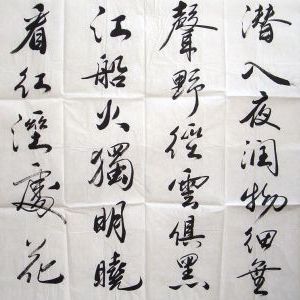 潜入夜润物细無
聲野徑雲俱黑
江船火獨明曉
看红溼處花